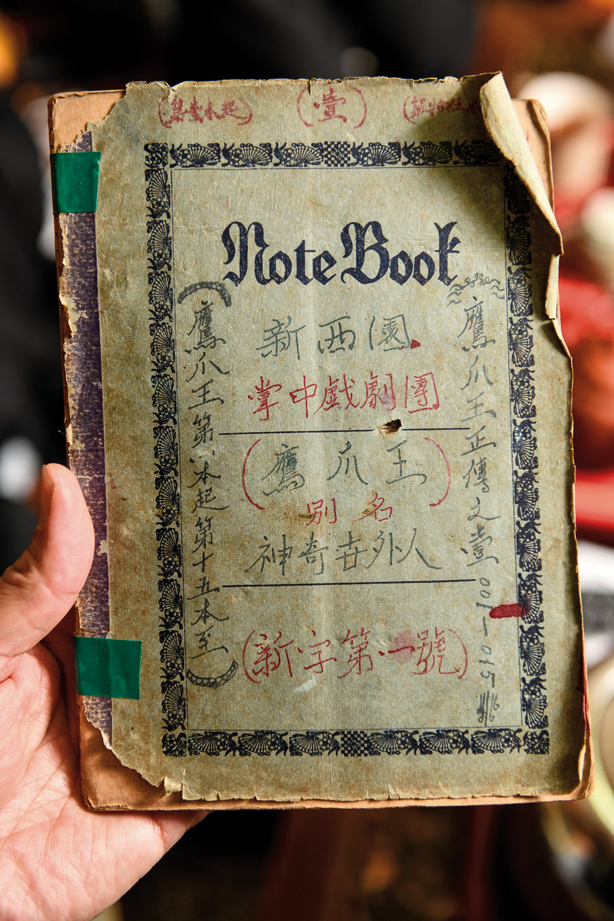 (第壹本起)
(壹)
Note Book
鷹爪王正傳文壹 001-015
新西園
掌中戲劇團
(鷹爪王)
別名
神奇世外人
(新字第一號)
(鷹爪王第一本起第十五本至)